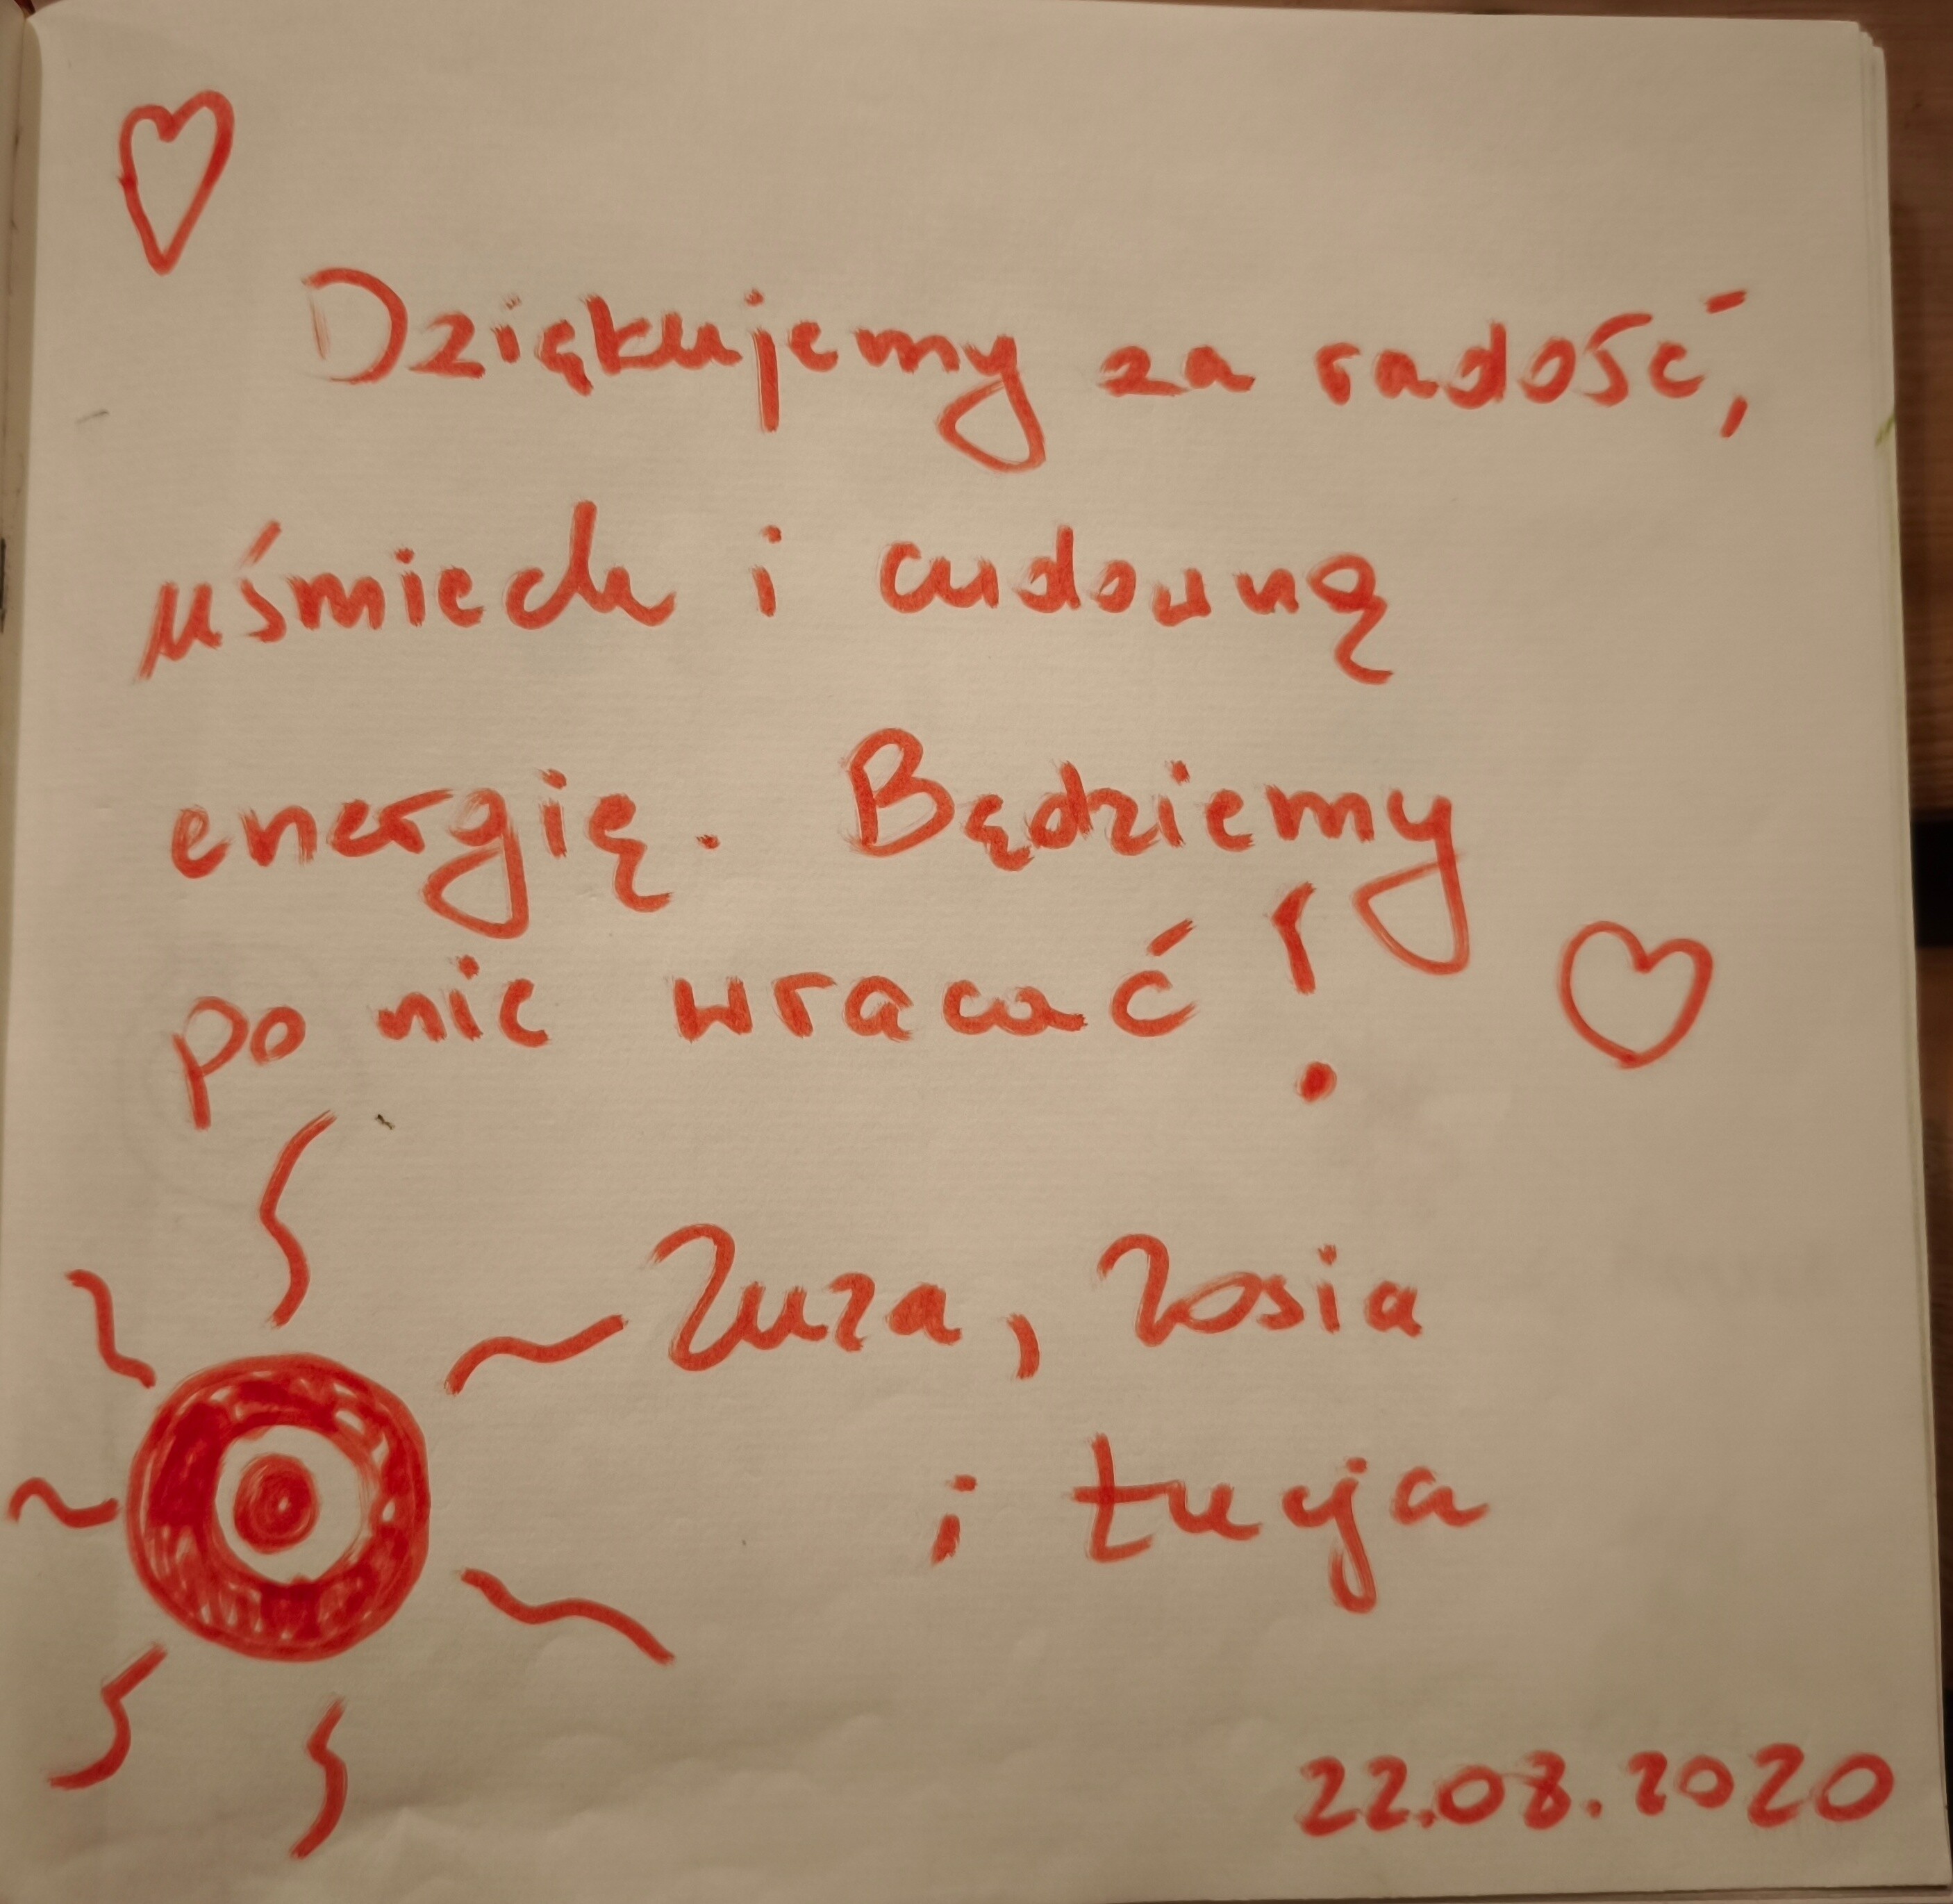 Dziękujemy za radość,
uśmiech i cudowną
energię. Będziemy
po nie wracać!
Zuza, Zosia
i Łucja
22.08.2020